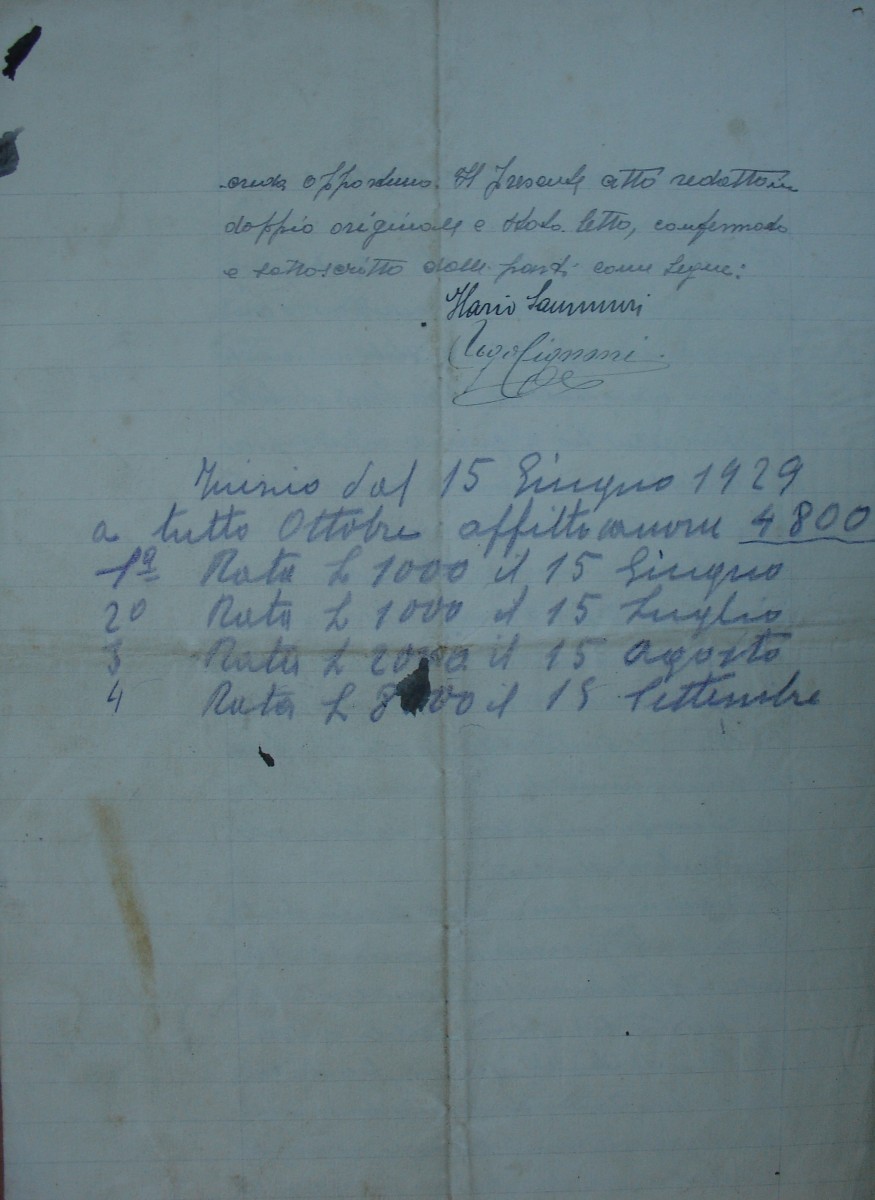 creda opportuno. Il presente atto redatto in
doppio originale e stato letto, confermato
e sottoscritto dalle parti come segue:
Ilario
Inizio dal 15 Giugno 1929
a tutto Ottobre affitto canone 4800
1ª Rata L 1000 il 15 Giugno
2º Rata L 1000 il 15 Luglio
3 Rata L 2000 il 15 Agosto
4 Rata L 800 il 15 Settembre